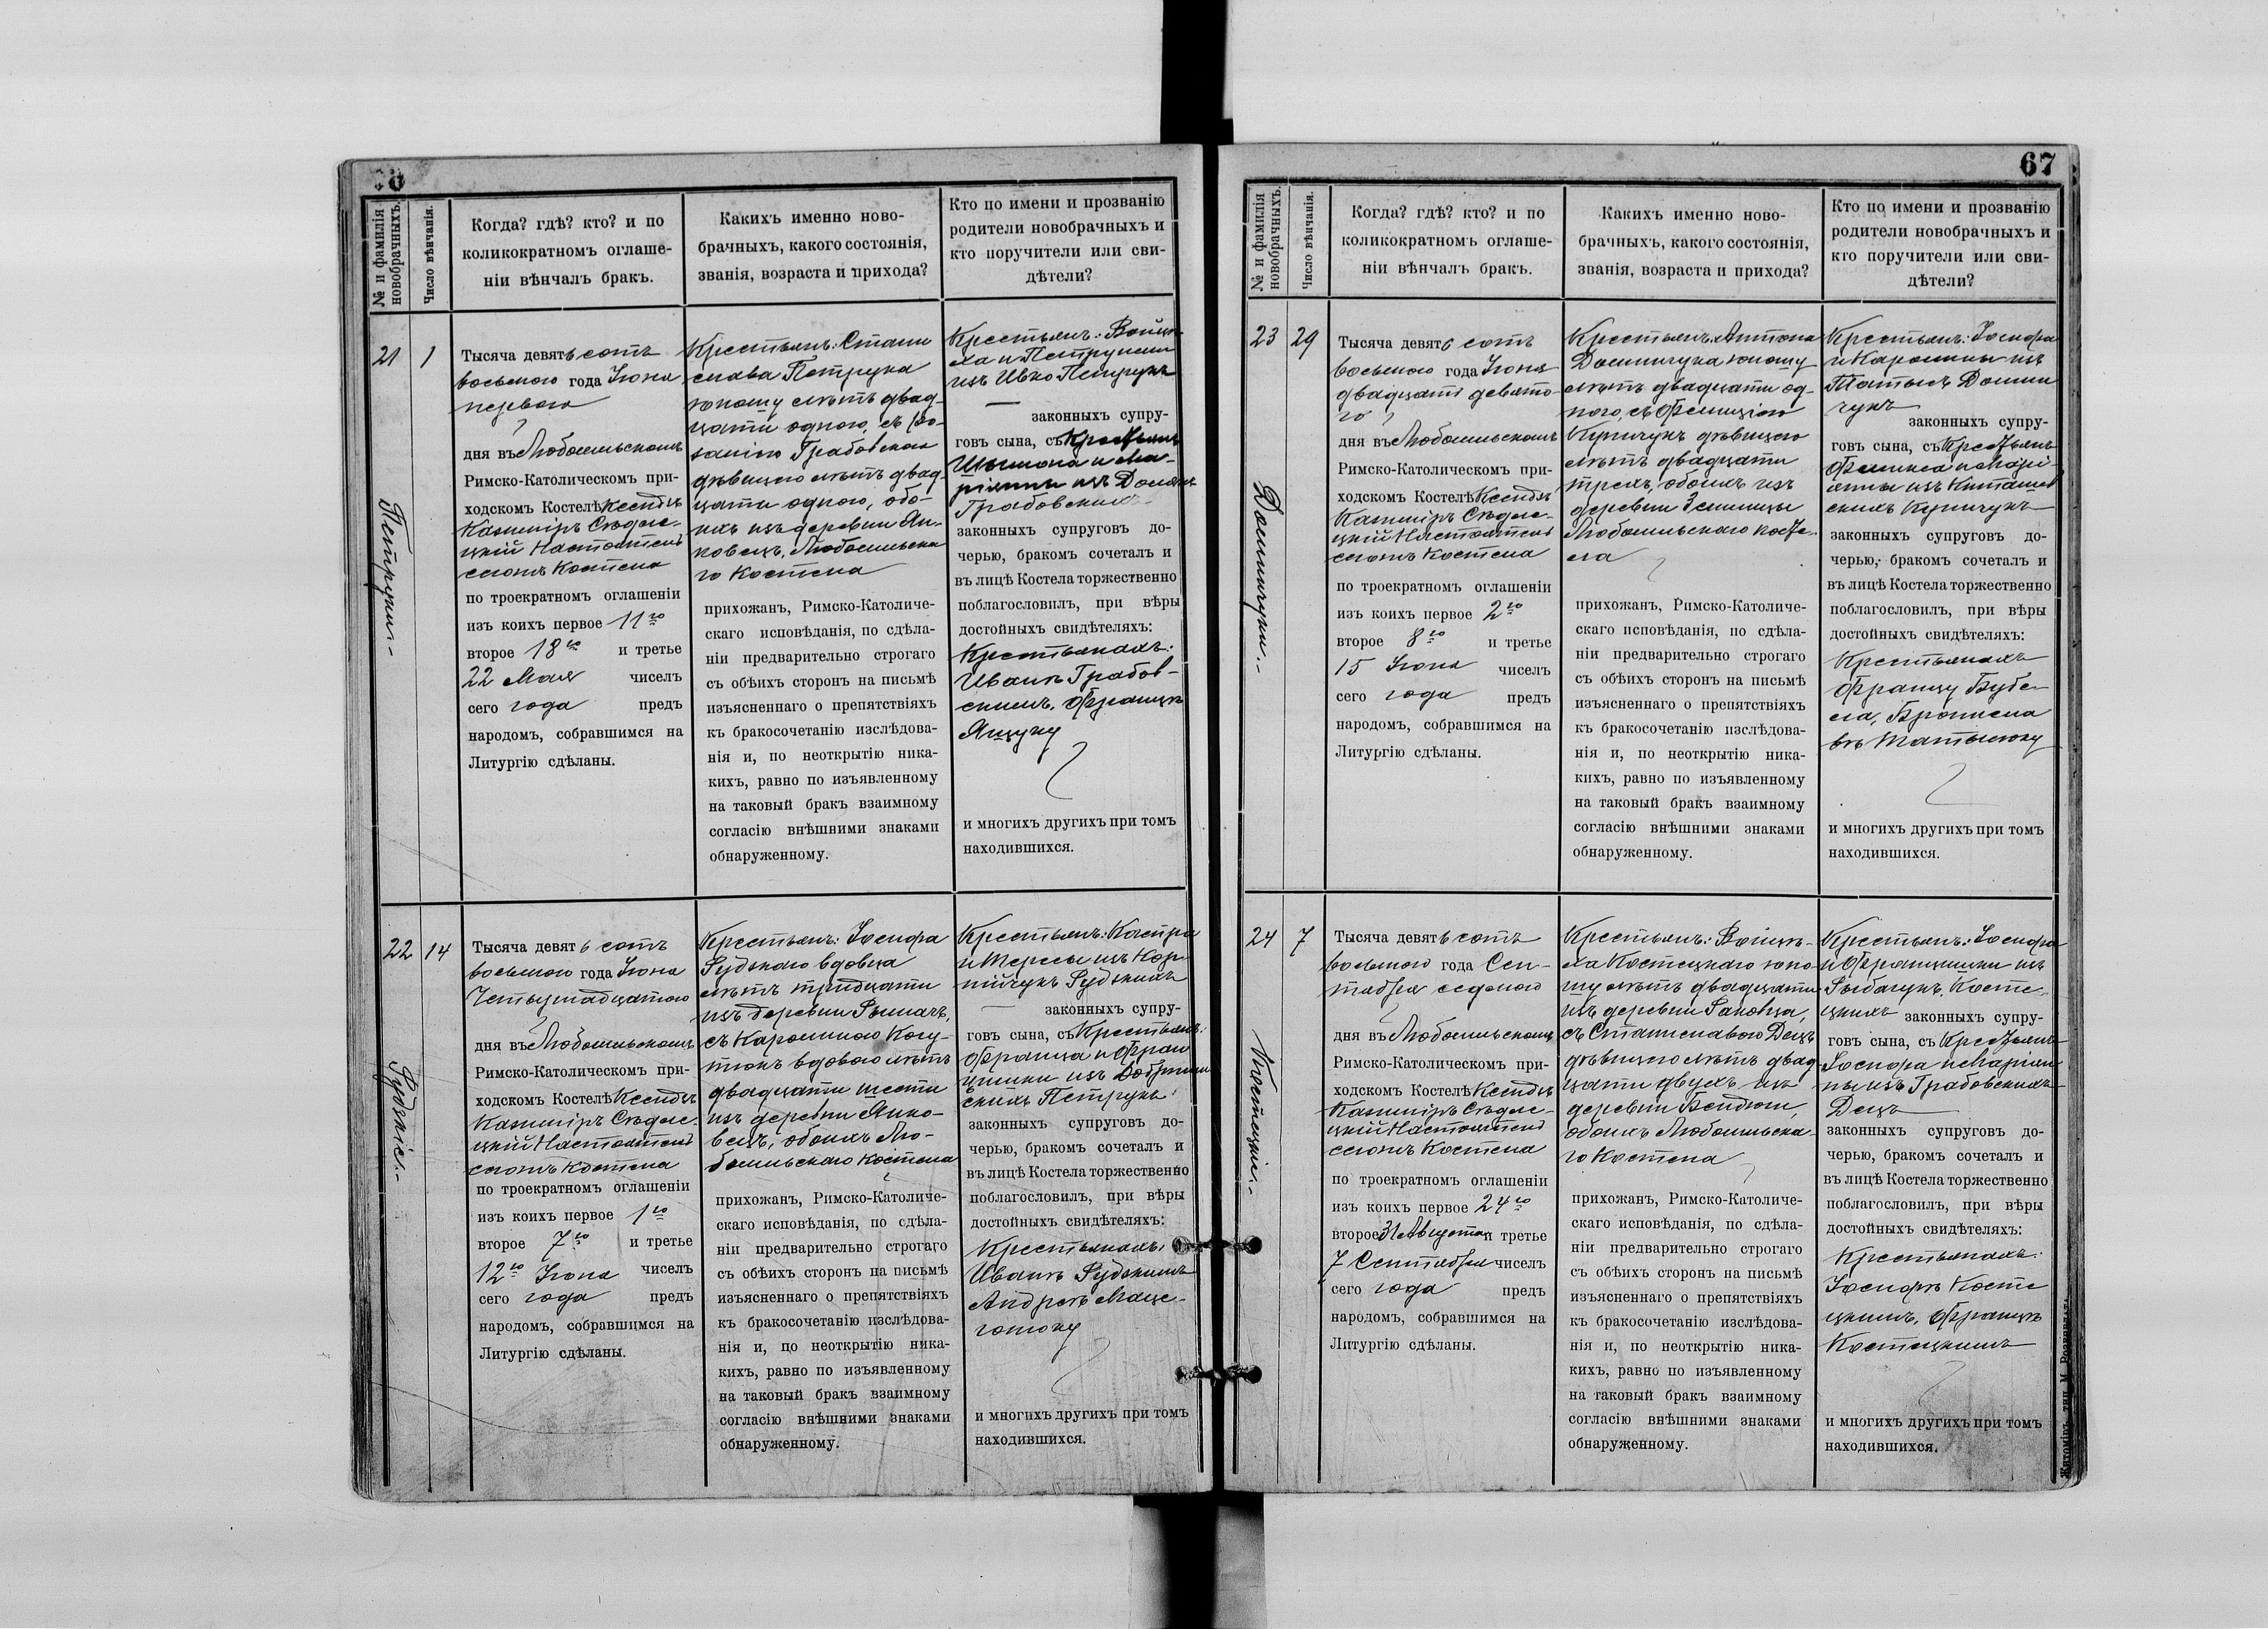 № и фамилія
новобрачныхъ.
Число вѣнчанія.
Когда? гдѣ? кто? и по
коликократномъ оглаше-
ніи вѣнчалъ бракъ.
Какихъ именно ново-
брачныхъ, какого состоянія,
званія, возраста и прихода?
Кто по имени и прозванію
родители новобрачныхъ и
кто поручители или сви-
дѣтели?
21
1
Петруки.-
Тысяча девятьсотъ
восьмого года Іюня
перваго
дня въ Любомльскомъ
Римско-Католическомъ при-
ходскомъ Костелѣ Ксендзъ
Казиміръ Сѣдле-
цкій Настоятель
сегожъ Костела
по троекратномъ оглашеніи
изъ коихъ первое 11го
второе 18го и третье
22 Мая чиселъ
сего года предъ
народомъ, собравшимся на
Литургію сдѣланы.
Крестьянъ: Стани
слава Петрука
юношу лѣтъ двад-
цати одного, съ Ро-
заліею Грабовскою
дѣвицею лѣтъ двад-
цати одного, обо-
ихъ изъ деревни Ян-
ковецъ, Любомльска
го Костела
прихожанъ, Римско-Католиче-
скаго исповѣданія, по сдѣла-
ніи предварительно строгаго
съ обѣихъ сторонъ на письмѣ
изъясненнаго о препятствіяхъ
къ бракосочетанію изслѣдова-
нія и, по неоткрытію ника-
кихъ, равно по изъявленному
на таковый бракъ взаимному
согласію внѣшними знаками
обнаруженному.
Крестьянъ: Войцѣ-
ха и Петрунели
изъ Ивко Петрукъ
законныхъ супру-
говъ сына, съ Крестьянъ
Шымона и Ма-
ріянны изъ
Грабовскихъ
законныхъ супруговъ до-
черью, бракомъ сочеталъ и
въ лицѣ Костела торжественно
поблагословилъ, при вѣры
достойныхъ свидѣтеляхъ:
Крестьянахъ:
Иванѣ Грабов-
скимъ, Францѣ
Ящуку
и многихъ другихъ при томъ
находившихся.
22
14
Рудзкіе.-
Тысяча девятьсотъ
восьмого года Іюня
Четырнадцатого
дня въ Любомльскомъ
Римско-Католическомъ при-
ходскомъ Костелѣ Ксендзъ
Казиміръ Сѣдле-
цкій Настоятель
сегожъ Костела
по троекратномъ оглашеніи
изъ коихъ первое 1го
второе 7го и третье
12го Іюня чиселъ
сего года предъ
народомъ, собравшимся на
Литургію сдѣланы.
Крестьянъ: Іосифа
Рудзкаго вдовца
лѣтъ тридцати
изъ деревни Рымачъ,
съ Каролиною Косу-
тюкъ вдовою лѣтъ
двадцати шести
изъ деревни Янко-
вецъ, обоихъ Лю-
бомльскаго Костела
прихожанъ, Римско-Католиче-
скаго исповѣданія, по сдѣла-
ніи предварительно строгаго
съ обѣихъ сторонъ на письмѣ
изъясненнаго о препятствіяхъ
къ бракосочетанію изслѣдова-
нія и, по неоткрытію ника-
кихъ, равно по изъявленному
на таковый бракъ взаимному
согласію внѣшними знаками
обнаруженному.
Крестьянъ: Каспра
и Тересы изъ Кор-
нійчукъ Рудзкихъ
законныхъ супру-
говъ сына, съ Крестьянъ:
Франца и Фран
цишки изъ
скихъ Петрукъ
законныхъ супруговъ до-
черью, бракомъ сочеталъ и
въ лицѣ Костела торжественно
поблагословилъ, при вѣры
достойныхъ свидѣтеляхъ:
Крестьянахъ:
Иванѣ Рудзкимъ
Андреѣ Маце-
гонюку
и многихъ другихъ при томъ
находившихся.
67
№ и фамилія
новобрачныхъ.
Число вѣнчанія.
Когда? гдѣ? кто? и по
коликократномъ оглаше-
ніи вѣнчалъ бракъ.
Какихъ именно ново-
брачныхъ, какого состоянія,
званія, возраста и прихода?
Кто по имени и прозванію
родители новобрачныхъ и
кто поручители или сви-
дѣтели?
23
29
Доминчуки.-
Тысяча девятьсотъ
восьмого года Іюня
двадцать девято-
го
дня въ Любомльскомъ
Римско-Католическомъ при-
ходскомъ Костелѣ Ксендзъ
Казиміръ Сѣдле-
цкій Настоятель
сегожъ Костела
по троекратномъ оглашеніи
изъ коихъ первое 2го
второе 8го и третье
15 Іюня чиселъ
сего года предъ
народомъ, собравшимся на
Литургію сдѣланы.
Крестьянъ: Антона
Доминчука юношу
лѣтъ двадцати од-
ного, съ Фелиціею
Купчукъ дѣвицею
лѣтъ двадцати
трехъ, обоихъ изъ
деревни Земмицы
Любомльскаго Косте-
ла
прихожанъ, Римско-Католиче-
скаго исповѣданія, по сдѣла-
ніи предварительно строгаго
съ обѣихъ сторонъ на письмѣ
изъясненнаго о препятствіяхъ
къ бракосочетанію изслѣдова-
нія и, по неоткрытію ника-
кихъ, равно по изъявленному
на таковый бракъ взаимному
согласію внѣшними знаками
обнаруженному.
Крестьянъ: Іосифа
и Каролины изъ
Домин
чукъ
законныхъ супру-
говъ сына, съ Крестьянъ
Феликса и Марі-
анны изъ
скихъ Купчукъ
законныхъ супруговъ до-
черью, бракомъ сочеталъ и
въ лицѣ Костела торжественно
поблагословилъ, при вѣры
достойныхъ свидѣтеляхъ:
Крестьянахъ
Францу Бубе-
ла, Бронисла
вѣ Матысюку
и многихъ другихъ при томъ
находившихся.
24
7
Костецкіи.-
Тысяча девятьсотъ
восьмого года Сен-
тября седмого
дня въ Любомльскомъ
Римско-Католическомъ при-
ходскомъ Костелѣ Ксендзъ
Казиміръ Сѣдле-
цкій Настоятель
сегожъ Костела
по троекратномъ оглашеніи
изъ коихъ первое 24го
второе 31 Августа и третье
7 Сентября чиселъ
сего года предъ
народомъ, собравшимся на
Литургію сдѣланы.
Крестьянъ: Войцѣ-
ха Костецкаго юно-
шу лѣтъ двадцати
изъ деревни Раковца,
съ Станиславою Децъ
дѣвицею лѣтъ двад
цати двухъ изъ
деревни Бендюги,
обоихъ Любомльска-
го Костела
прихожанъ, Римско-Католиче-
скаго исповѣданія, по сдѣла-
ніи предварительно строгаго
съ обѣихъ сторонъ на письмѣ
изъясненнаго о препятствіяхъ
къ бракосочетанію изслѣдова-
нія и, по неоткрытію ника-
кихъ, равно по изъявленному
на таковый бракъ взаимному
согласію внѣшними знаками
обнаруженному.
Крестьянъ: Іосифа
и Францишки изъ
Рыбачукъ Косте-
цкихъ законныхъ супру-
говъ сына, съ Крестьянъ
Іосифа и Маріян
ны изъ Грабовскихъ
Децъ
законныхъ супруговъ до-
черью, бракомъ сочеталъ и
въ лицѣ Костела торжественно
поблагословилъ, при вѣры
достойныхъ свидѣтеляхъ:
Крестьянахъ:
Іосифѣ Косте
цкимъ, Францѣ
Костецкимъ
и многихъ другихъ при томъ
находившихся.
Житоміръ, тип. М.